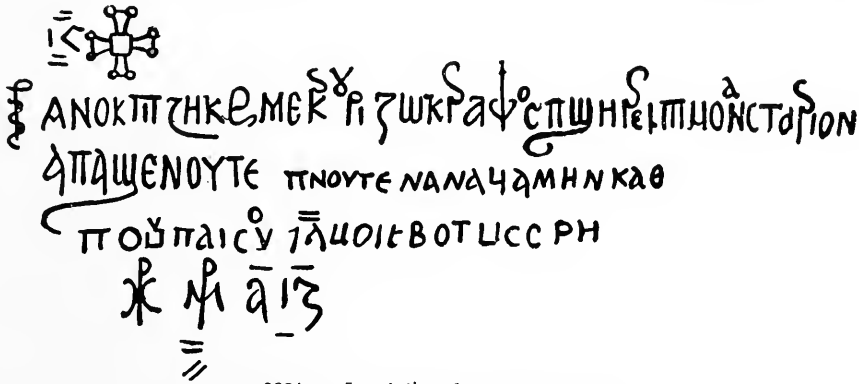 ⲓ̅ⲥ̅
ⲁⲛⲟⲕ ⲡⲧϩⲏⲕⲉ ⲙⲉⲣⲕⲟⲩⲣⲓ ⲍⲱⲕⲣⲁⲫⲟⲥ ⲡϣⲏⲣⲉ ⲙⲡⲙⲟⲛⲁⲥⲧⲏⲣⲓⲟⲛ
ⲁⲡⲁ ϣⲉⲛⲟⲩⲧⲉ ⲡⲛⲟⲩⲧⲉ ⲛⲁⲛⲁϥ ⲁⲙⲏⲛ ⲕⲁⲑ
ⲡⲟⲟⲩ ⲡⲁⲓ ⲥⲟⲩ ⲓ̅ⲇ̅ ⲙⲟⲓⲉⲃⲟⲧ ⲙⲥⲥⲣⲏ
ⲁ̅ ⲓ̅ⲍ̅